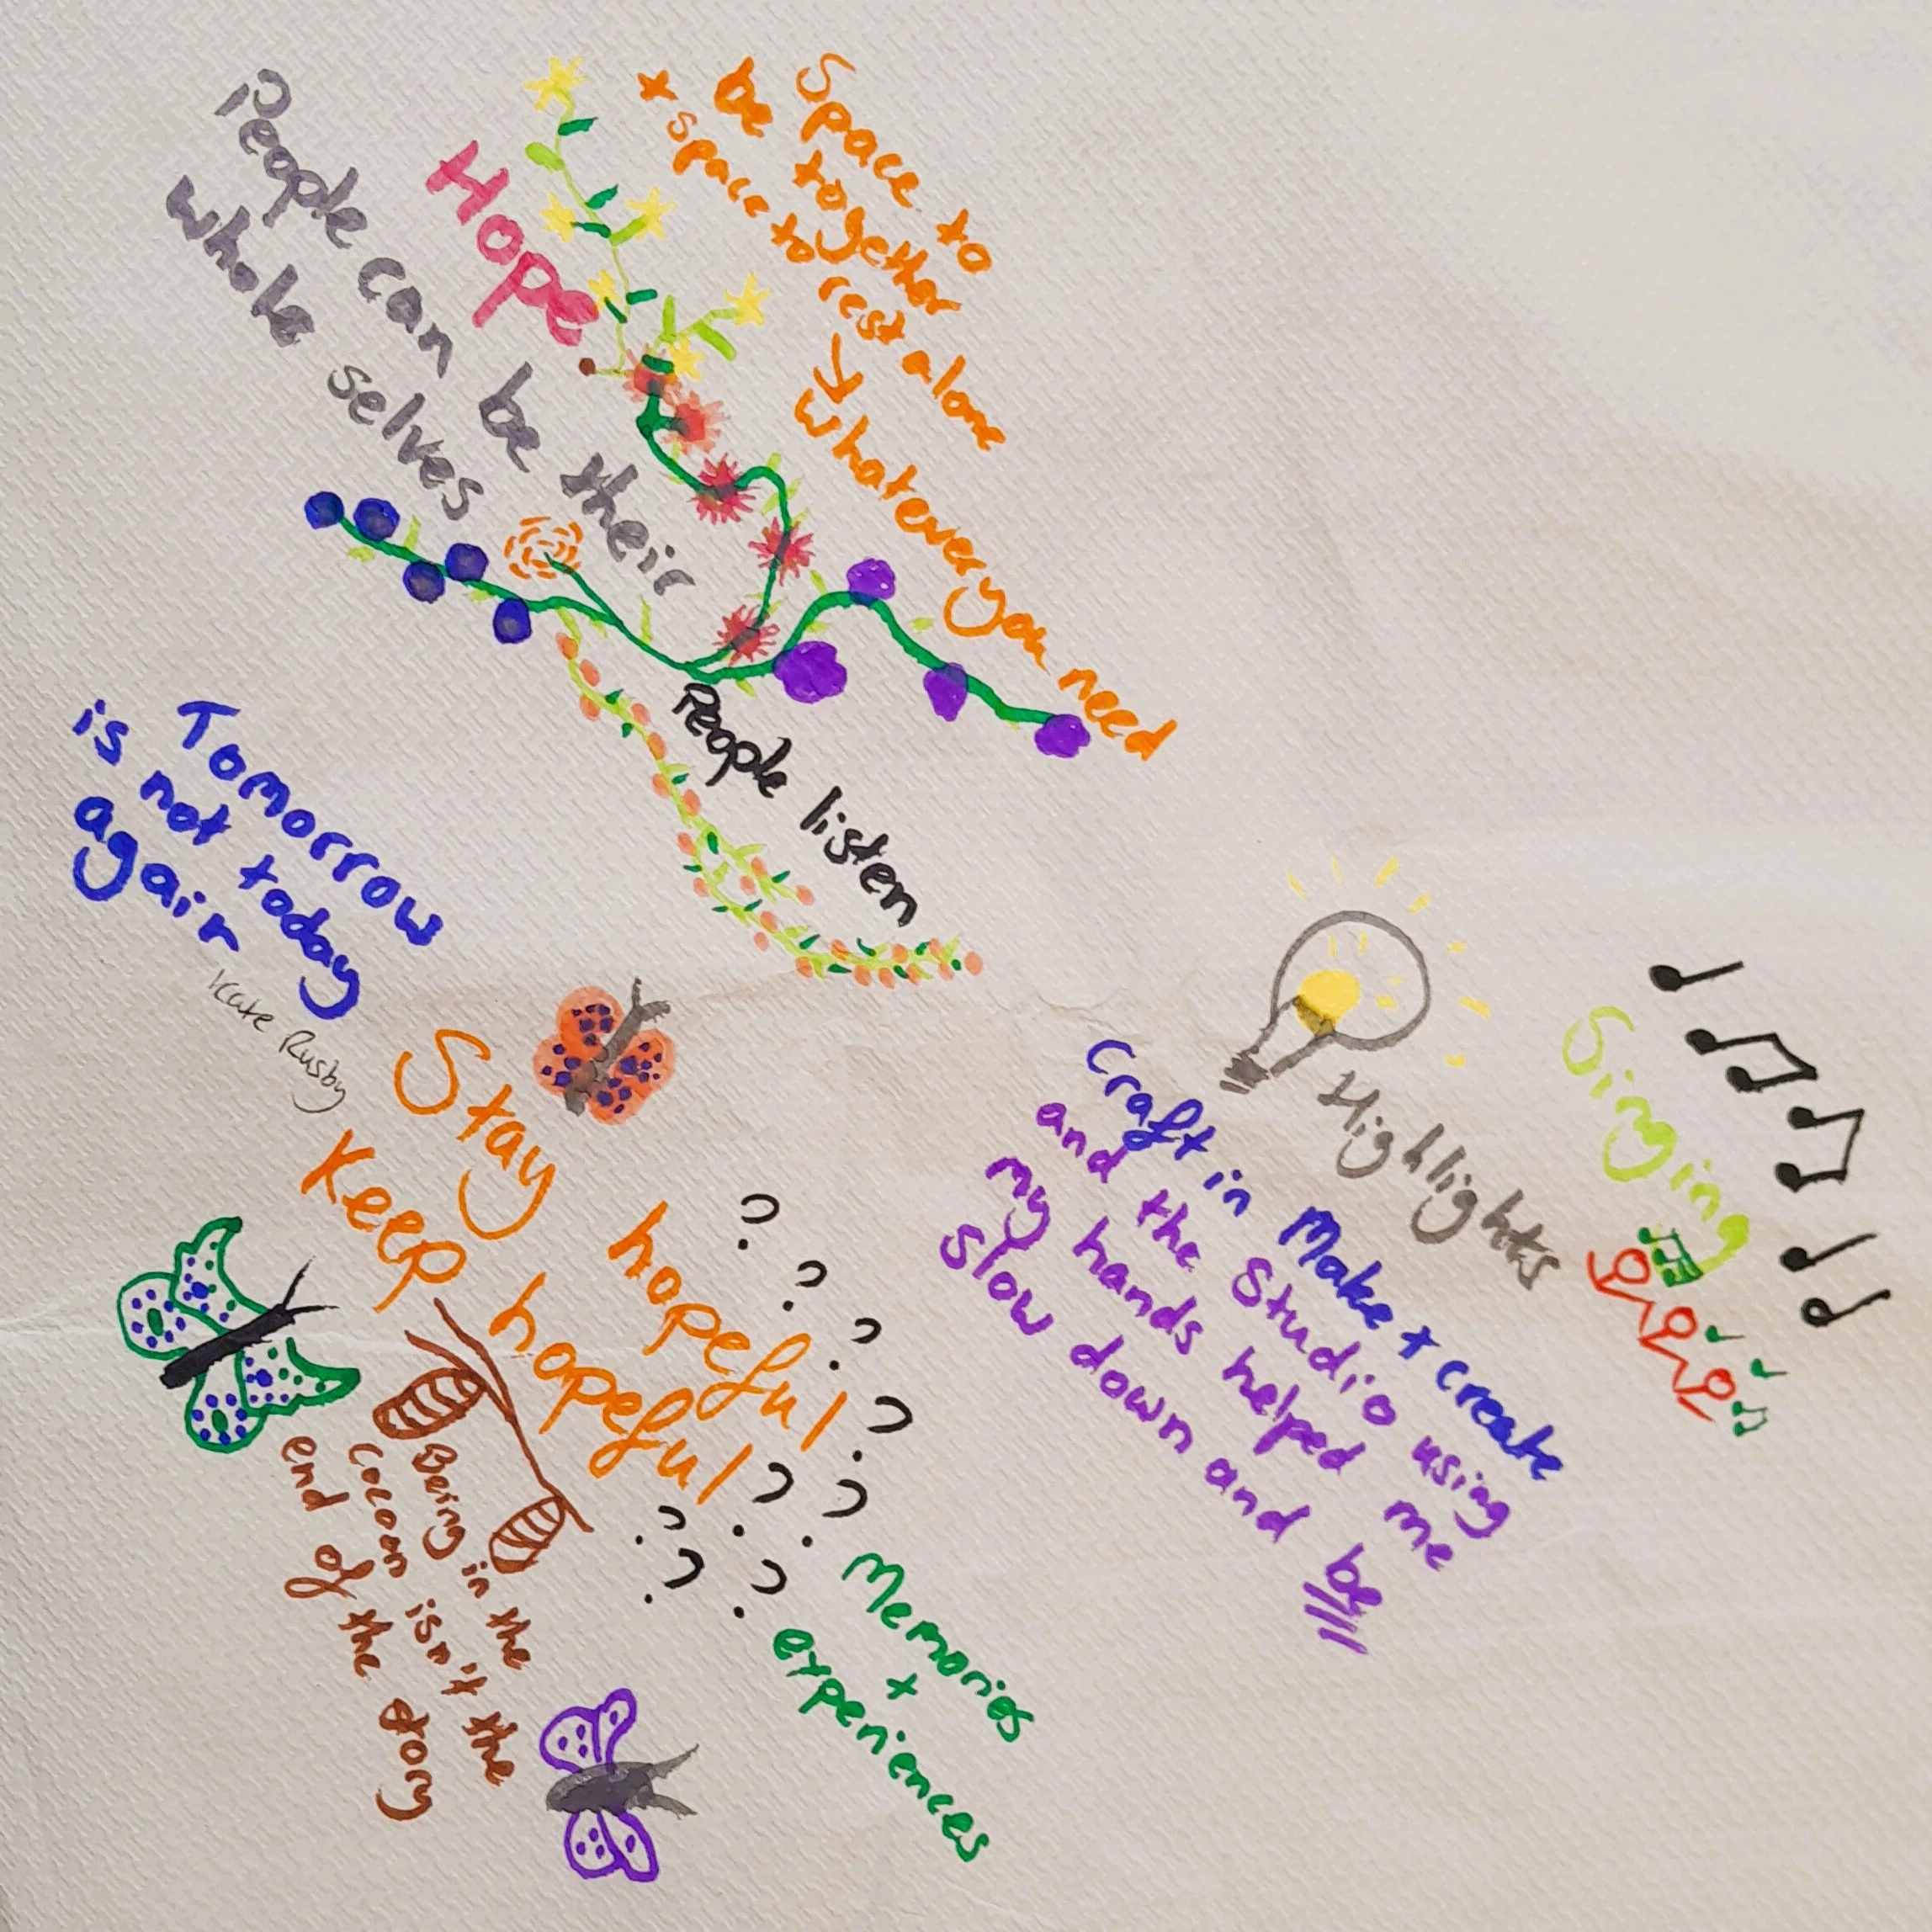 Space to
be together
+ space to rest alone
→ whatever you need
Hope
People can be their
whole selves
People listen
Tomorrow
is not today
again
Kate Rusby
Stay hopeful
Keep hopeful
? ? ? ? ? ? ? ? ? ?
Being in the
cocoon isn't the
end of the story
Memories
+
experiences
Highlights
Craft in Make + create
and the Studio using
my hands helped me
slow down and be
Singing